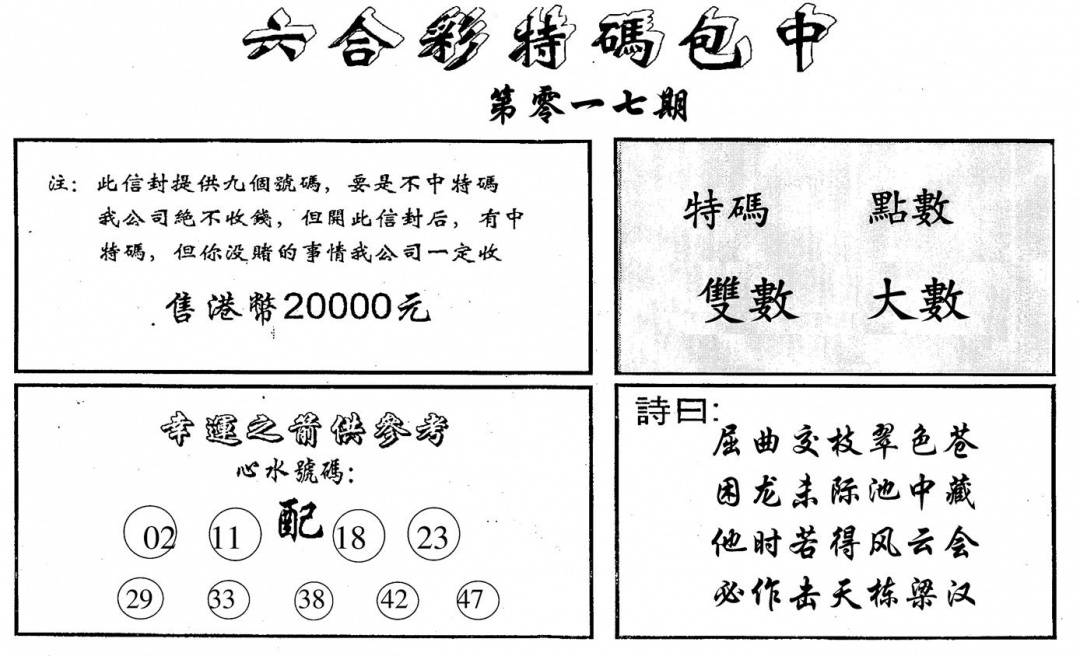 六合彩特碼包中
第零一七期
注：此信封提供九個號碼，要是不中特碼
我公司絕不收錢，但開此信封后，有中
特碼，但你没賭的事情我公司一定收
售港幣20000元
特碼 點數
雙數 大數
幸運之箭供參考
心水號碼：
配
02 11 18 23
29 33 38 42 47
詩曰：
屈曲交枝翠色苍
困龙未际池中藏
他时若得风云会
必作击天栋梁汉